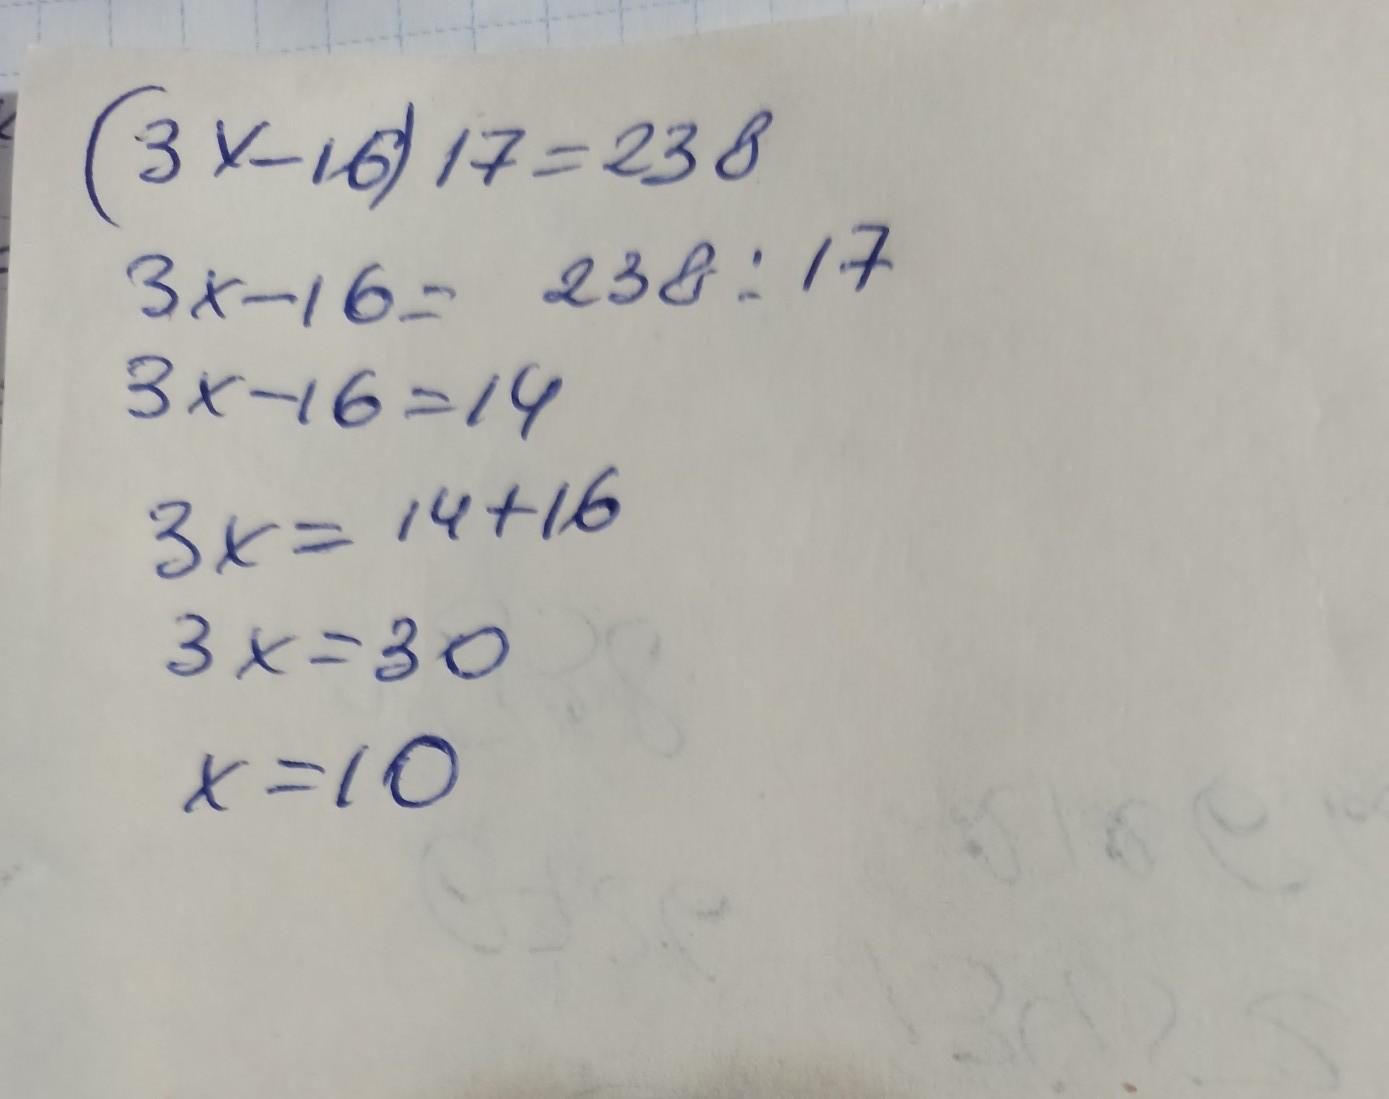 (3x-16)17=238
3x-16= 238:17
3x-16=14
3x=14+16
3x=30
x=10